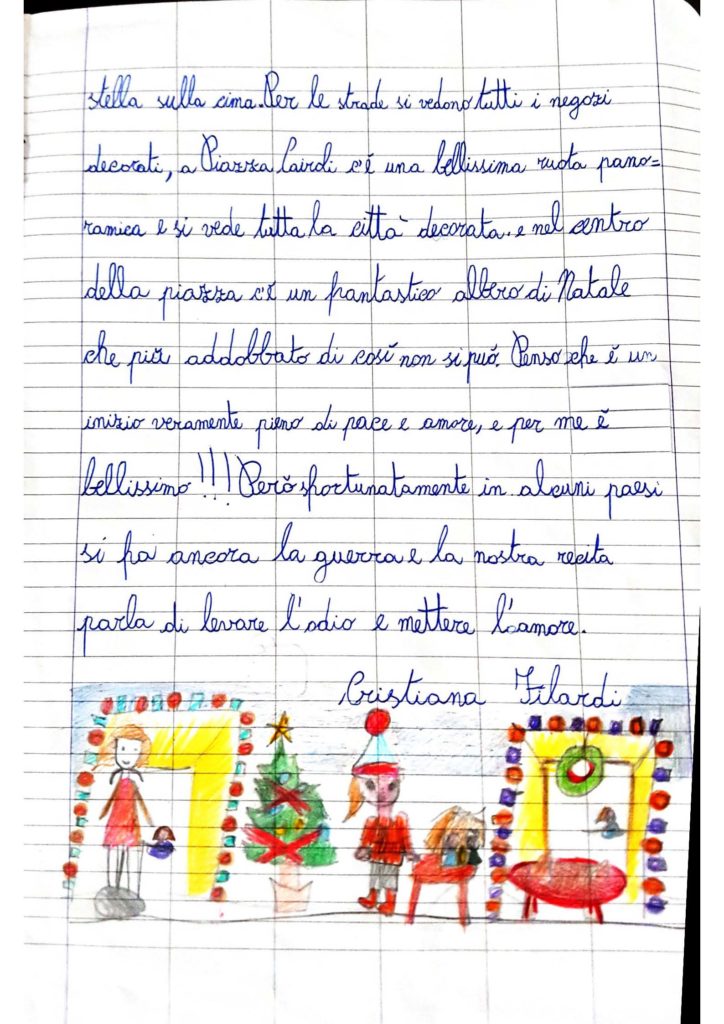 stella sulla cima. Per le strade si vedono tutti i negozi
decorati, a Piazza Cairoli c'é una bellissima ruota pano=
ramica e si vede tutta la città decorata. e nel centro
della piazza c'é un fantastico albero di Natale
che più addobbato di cosí non si può. Penso che é un
inizio veramente pieno di pace e amore, e per me é
bellissimo !!! Però sfortunatamente in alcuni paesi
si fa ancora la guerra e la nostra recita
parla di levare l'odio e mettere l'amore.
Cristiana Filardi